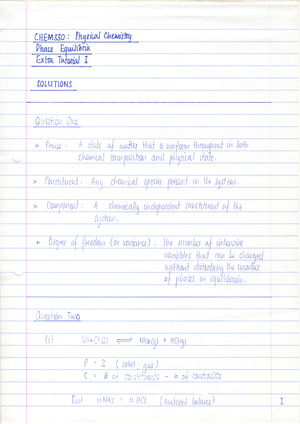 CHEM330: Physical Chemistry
Phase Equilibria
Extra Tutorial I
SOLUTIONS
Question One
> Phase: A state of matter that is uniform throughout in both
chemical composition and physical state.
> Constituent: Any chemical species present in the system.
> Component: A chemically independent constituent of the
system.
> Degree of freedom (or variance): The number of intensive
variables that can be changed
without disturbing the number
of phases in equilibrium.
Question Two
(i) NH4Cl(s) ⇌ NH3(g) + HCl(g)
P = 2 (solid, gas)
C = # of constituents - # of constraints
But n NH3 = n HCl (material balance)
1